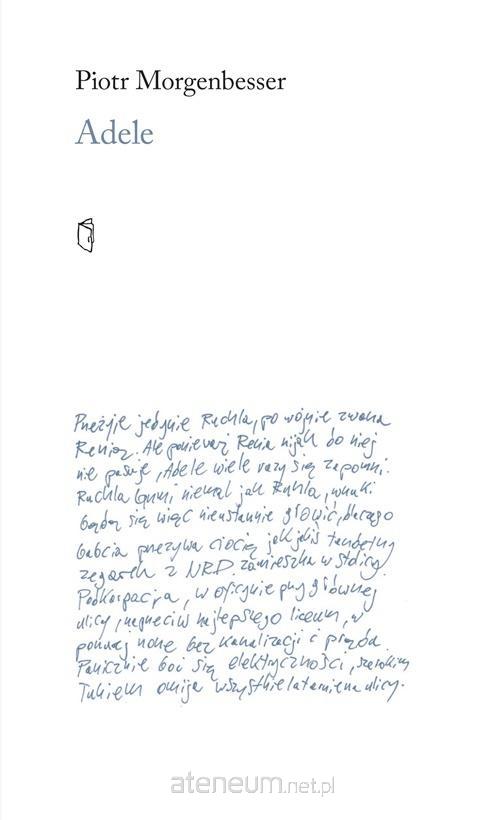 Piotr Morgenbesser
Adele
Przeżyje jedynie Ruchla, po wojnie zwana
Renią. Ale ponieważ Renia nijak do niej
nie pasuje, Adele wiele razy się zapomni.
Ruchla brzmi niemal jak Ruhla, wnuki
będą się więc nieustannie głowić, dlaczego
babcia przezywa ciocię jak jakiś tandetny
zegarek z NRD. Zamieszka w stolicy
Podkarpacia, w oficynie przy głównej
ulicy, naprzeciw najlepszego liceum, w
ponurej norze bez kanalizacji i prądu.
Panicznie boi się elektryczności, szerokim
łukiem omija wszystkie latarnie na ulicy.
ateneum.net.pl